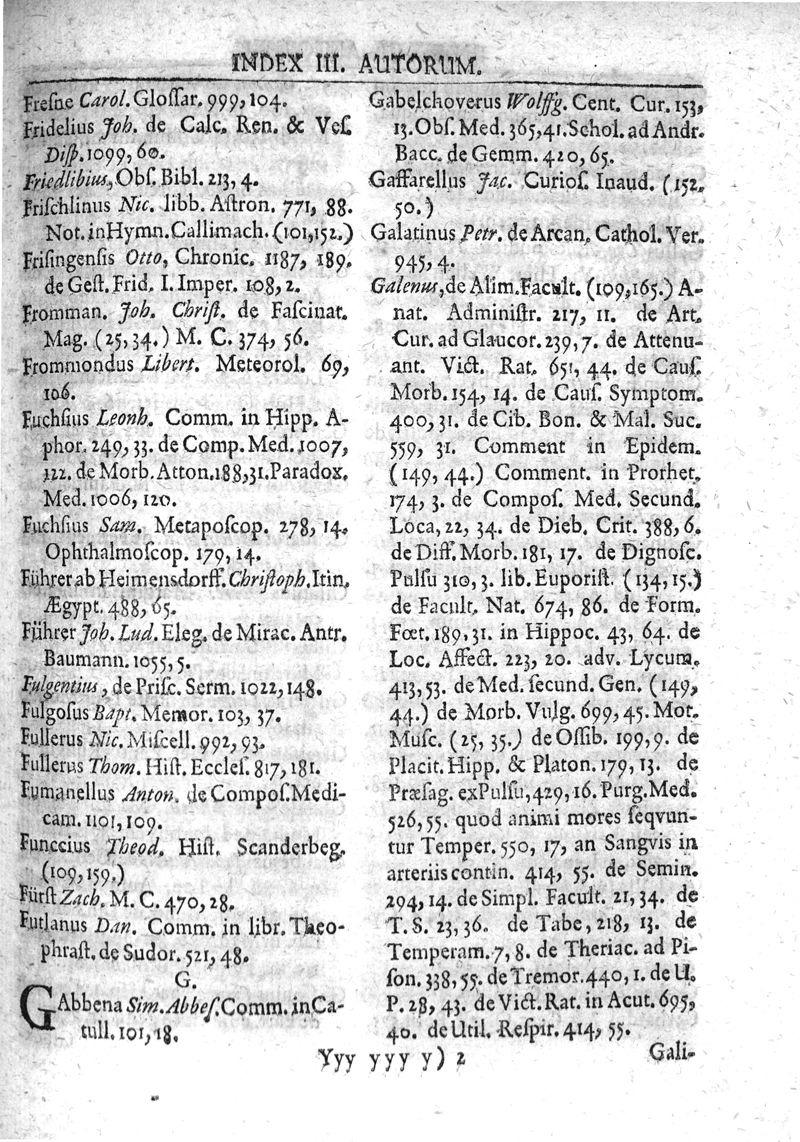 INDEX III. AUTORUM.
Freſne Carol. Gloſſar. 999, 104.
Fridelius Joh. de Calc. Ren. & Veſ.
Diſp. 1099, 60.
Friedlibius, Obſ. Bibl. 213, 4.
Friſchlinus Nic. libb. Aſtron. 771, 88.
Not. in Hymn. Callimach. (101, 152.)
Friſingenſis Otto, Chronic. 1187, 189.
de Geſt. Frid. I. Imper. 108, 2.
Fromman. Joh. Chriſt. de Faſcinat.
Mag. (25, 34.) M. C. 374, 56.
Frommondus Libert. Meteorol. 69,
106.
Fuchſius Leonh. Comm. in Hipp. A-
phor. 249, 33. de Comp. Med. 1007,
122. de Morb. Atton. 188, 31. Paradox.
Med. 1006, 120.
Fuchſius Sam. Metapoſcop. 278, 14.
Ophthalmoſcop. 179, 14.
Führer ab Heimensdorff. Chriſtoph. Itin.
Ægypt. 488, 65.
Führer Joh. Lud. Eleg. de Mirac. Antr.
Baumann. 1055, 5.
Fulgentius, de Priſc. Serm. 1022, 148.
Fulgoſus Bapt. Memor. 103, 37.
Fullerus Nic. Miſcell. 992, 93.
Fullerus Thom. Hiſt. Eccleſ. 817, 181.
Fumanellus Anton. de Compoſ. Medi-
cam. 1101, 109.
Funccius Theod. Hiſt. Scanderbeg.
(109, 159.)
Fürſt Zach. M. C. 470, 28.
Futlanus Dan. Comm. in libr. Theo-
phraſt. de Sudor. 521, 48.
G.
GAbbena Sim. Abbeſ. Comm. in Ca-
tull. 101, 18.
Gabelchoverus Wolffg. Cent. Cur. 153,
13. Obſ. Med. 365, 41. Schol. ad Andr.
Bacc. de Gemm. 420, 65.
Gaffarellus Jac. Curioſ. Inaud. (152.
50.)
Galatinus Petr. de Arcan. Cathol. Ver.
945, 4.
Galenus, de Alim. Facult. (109, 165.) A-
nat. Adminiſtr. 217, 11. de Art.
Cur. ad Glaucor. 239, 7. de Attenu-
ant. Vict. Rat. 651, 44. de Cauſ.
Morb. 154, 14. de Cauſ. Symptom.
400, 31. de Cib. Bon. & Mal. Suc.
559, 31. Comment in Epidem.
(149, 44.) Comment. in Prorhet.
174, 3. de Compoſ. Med. Secund.
Loca, 22, 34. de Dieb. Crit. 388, 6.
de Diff. Morb. 181, 17. de Dignoſc.
Pulſu 310, 3. lib. Euporiſt. (134, 15.)
de Facult. Nat. 674, 86. de Form.
Fœt. 189, 31. in Hippoc. 43, 64. de
Loc. Affect. 223, 20. adv. Lycum.
413, 53. de Med. ſecund. Gen. (149,
44.) de Morb. Vulg. 699, 45. Mot.
Muſc. (25, 35.) de Oſſib. 199, 9. de
Placit. Hipp. & Platon. 179, 13. de
Præſag. ex Pulſu, 429, 16. Purg. Med.
526, 55. quod animi mores ſeqvun-
tur Temper. 550, 17, an Sangvis in
arteriis contin. 414, 55. de Semin.
294, 14. de Simpl. Facult. 21, 34. de
T. S. 23, 36. de Tabe, 218, 13. de
Temperam. 7, 8. de Theriac. ad Pi-
ſon. 338, 55. de Tremor. 440, 1. de U.
P. 28, 43. de Vict. Rat. in Acut. 695,
40. de Util. Reſpir. 414, 55.
Yyy yyy y) 2
Gali-